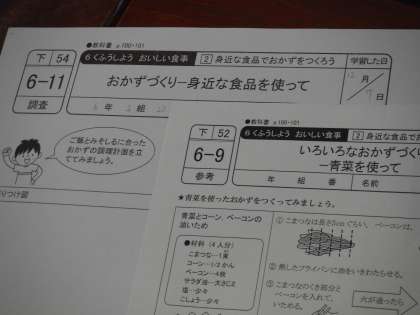 ●教科書 p.100・101
下 54
6 くふうしよう おいしい食事
2 身近な食品でおかずをつくろう
学習した日
6-11
調査
おかずづくり―身近な食品を使って
月
日
年 組
ご飯とみそしるに合った
おかずの調理計画を立
ててみましょう。
りつけ図
●教科書 p.100・101
下 52
6 くふうしよう おいしい食事
2 身近な食品でお
6-9
参考
いろいろなおかずづく
―青菜を使って
年 組 番 名前
★青菜を使ったおかずをつくってみましょう。
青菜とコーン、ベーコンの
油いため
●材料(4人分)
こまつな…1束
コーン…1/2かん
ベーコン…4枚
サラダ油…大さじ2
塩…少々
こしょう…少々
① こまつなは長さ5cmぐらい、ベーコンは、
② 熱したフライパンに油をいきわたらせる。
③ こまつなのくき部分と
ベーコンを入れて、
いためる。
火が通ったら